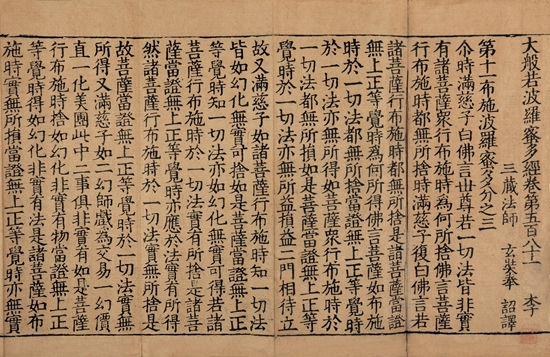 大般若波羅蜜多經卷第五百八十一 李
三藏法師 玄奘奉 詔譯
第十一布施波羅蜜多分之三
尒時滿慈子白佛言世尊若一切法皆非實
有諸菩薩衆行布施時為何所捨佛言菩薩
行布施時都無所捨時滿慈子復白佛言若
諸菩薩行布施時都無所捨是諸菩薩當證
無上正等覺時為何所得佛言菩薩如布施
時於一切法都無所捨當證無上正等覺時
於一切法亦無所得如諸菩薩行布施時於
一切法都無所損如是菩薩當證無上正等
覺時於一切法亦無所益損益二門相待立
故又滿慈子如諸菩薩行布施時知一切法
皆如幻化無實可捨如是菩薩當證無上正
等覺時知一切法亦如幻化無實可得若諸
菩薩行布施時於一切法實有所捨是諸菩
薩當證無上正等覺時亦應於法實有所得
然諸菩薩行布施時於一切法實無所捨是
故菩薩當證無上正等覺時於一切法實無
所得又滿慈子如二幻師戲為交易一幻價
直一化美團此中二事俱非實有如是菩薩
行布施時捨如幻化非實有物當證無上正
等覺時得如幻化非實有法是諸菩薩如布
施時實無所損當證無上正等覺時亦無實